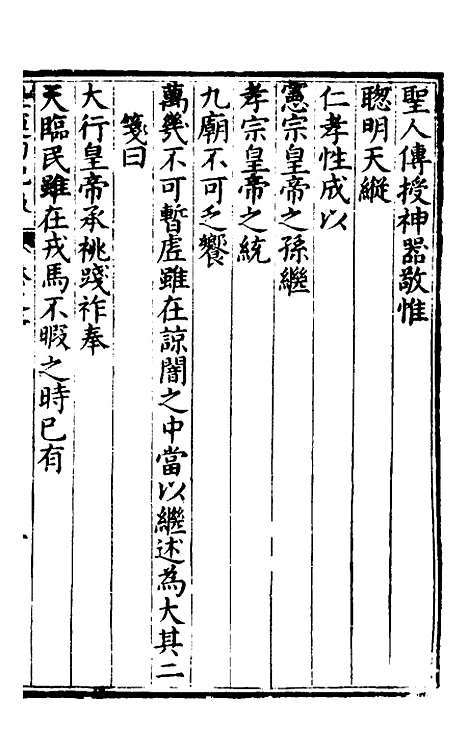 聖人傳授神器敬惟
聰明天縱
仁孝性成以
憲宗皇帝之孫繼
孝宗皇帝之統
九廟不可乏饗
萬幾不可暫虛雖在諒闇之中當以繼述為大其二
箋曰
大行皇帝承祧踐祚奉
天臨民雖在戎馬不暇之時已有